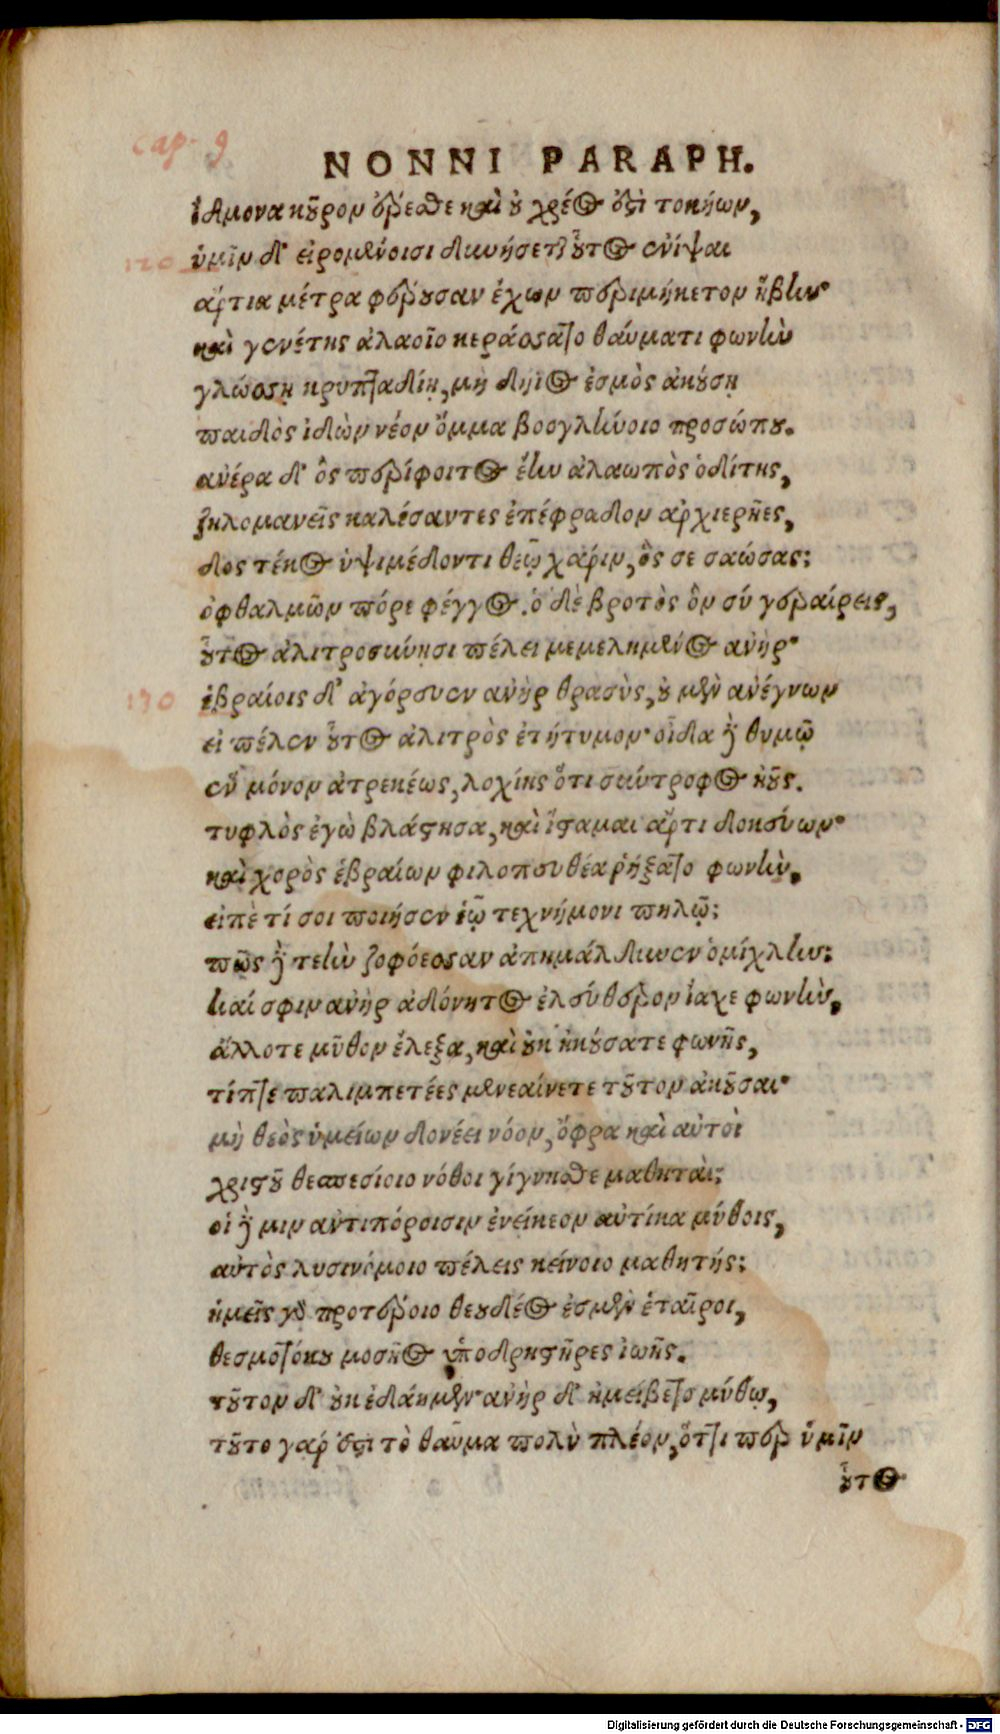 Cap. 9
NONNI PARAPH.
ἴδμονα κοῦρον ἔρεσθε καὶ οὐ χρέος ἐστὶ τοκήων,
120
ὑμῖν δ' εἰρομένοισι δυνήσεται οὗτος ἐνίψαι
ἄρτια μέτρα φέρουσαν ἔχων περιμήκετον ἥβην·
καὶ γενέτης ἀλαοῖο κεράσσατο θαύματι φωνὴν
γλώσσῃ κρυπταδίῃ, μὴ δήϊος ἐσμὸς ἀκούσῃ
παιδὸς ἰδὼν νέον ὄμμα βοογλήνοιο προσώπου.
ἀνέρα δ' ὃς περίφοιτος ἔην ἀλαωπὸς ὁδίτης,
ζηλομανεῖς καλέσαντες ἐπέφραδον ἀρχιερῆες,
δος τέκος ὑψιμέδοντι θεῷ χάριν, ὅς σε σαώσας;
ὀφθαλμῶν πόρε φέγγος. ὁ δὲ βροτὸς ὃν σύ γεραίρεις,
οὗτος ἀλιτροσύνησι πέλει μεμελημένος ἀνήρ·
130
ἑβραίοις δ' ἀγόρευεν ἀνὴρ θρασὺς, οὐ μὲν ἀνέγνων
εἰ πέλεν οὗτος ἀλιτρὸς ἐτήτυμον· οἶδα δὲ θυμῷ
ἓν μόνον ἀτρεκέως, λοχίης ὅτι σύντροφος ἠοῦς.
τυφλὸς ἐγὼ βλάστησα, καὶ ἵσταμαι ἄρτι δοκεύων·
καὶ χορὸς ἑβραίων φιλοπευθέα ῥήξατο φωνὴν,
εἰπὲ τί σοι ποίησεν ἑῷ τεχνήμονι πηλῷ;
πῶς δὲ τεὴν ζοφόεσσαν ἀπημάλδυνεν ὀμίχλην;
καί σφιν ἀνὴρ ἀδόνητος ἐλεύθερον ἴαχε φωνὴν,
ἄλλοτε μῦθον ἔλεξα, καὶ οὐκ ἠκούσατε φωνῆς,
τίπτε παλιμπετέες μενεαίνετε τοῦτον ἀκοῦσαι·
μὴ θεὸς ὑμείων δονέει νόον, ὄφρα καὶ αὐτοὶ
χριστοῦ θεσπεσίοιο νόθοι γίγνησθε μαθηταὶ;
οἱ δὲ μιν ἀντιπόροισιν ἐνείκεον αὐτίκα μύθοις,
αὐτὸς λυσινόμοιο πέλεις κείνοιο μαθητής;
ἡμεῖς γὰρ προτέροιο θεουδέος ἐσμὲν ἑταῖροι,
θεσμοτόκου μοσῆος ὑποδρηστῆρες ἰωῆς.
τοῦτον δ' οὐκ ἐδάημεν· ἀνὴρ δ' ἠμείβετο μύθῳ,
τοῦτο γάρ ἐστι τὸ θαῦμα πολὺ πλέον, ὅττι περ ὑμῖν
οὗτος
Digitalisierung gefördert durch die Deutsche Forschungsgemeinschaft - DFG